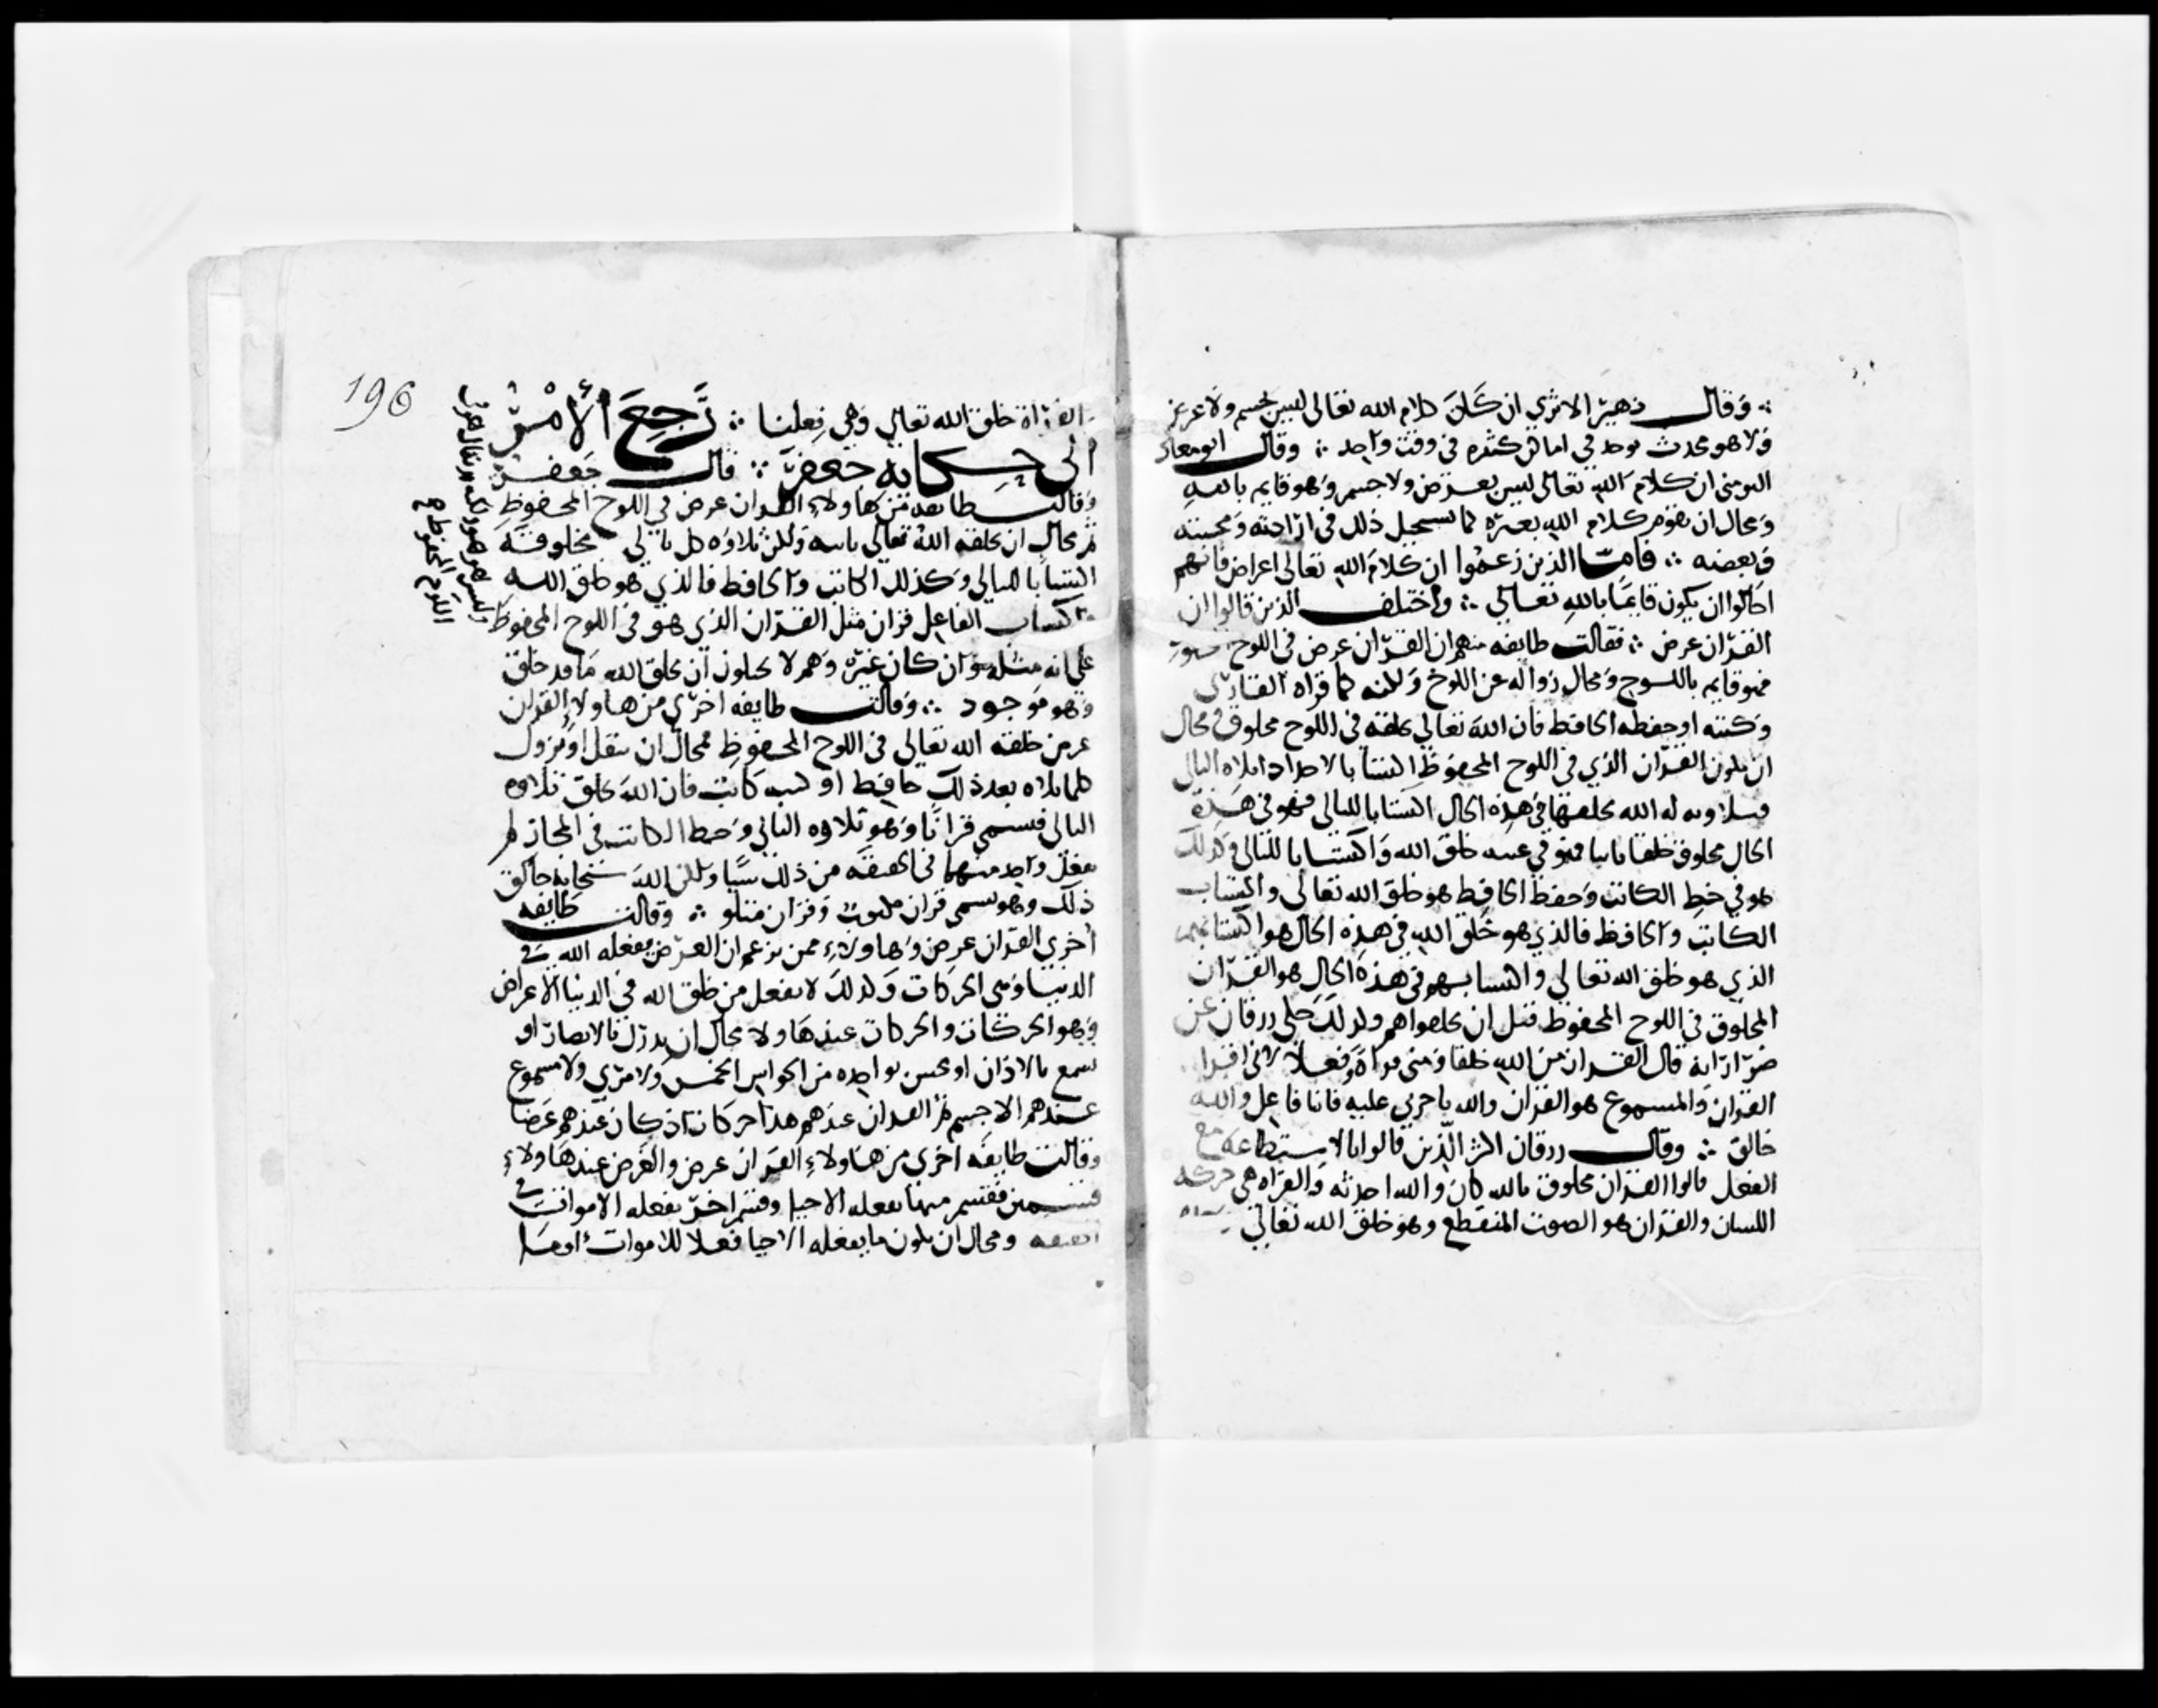 وقال زهير الاثري ان كان كلام الله تعالى ليس بجسم ولا عرض
ولا هو محدث يوجد في اماكن كثيره في وقت واحد ∴ وقال ابو معاذ
التومني ان كلام الله تعالى ليس بعرض ولا جسم وهو قايم بالله
ومحال ان يقوم كلام الله بغيره كما يستحيل ذلك في ارادته ومحبته
وبغضه ∴ فاما الذين زعموا ان كلام الله تعالى اعراض فانهم
احالوا ان يكون قايما بالله تعالى ∴ واختلف الذين قالوا ان
القران عرض ∴ فقالت طايفه منهم ان القران عرض في اللوح
فهو قايم باللوح ومحال زواله عن اللوح ولكنه كلما قراه القاري
وكتبه او حفظه الحافظ فان الله تعالى يخلقه في اللوح مخلوق ومحال
ان يكون القران الذي في اللوح المحفوظ اكتسابا لاحد اذا تلاه التالي
فتلاوته له الله يخلقها في هذه الحال اكتسابا للتالي فهو في هذه
الحال مخلوق خلقا ثانيا فهو في عينه خلق الله واكتسابا للتالي وكذلك
هو في خط الكاتب وحفظ الحافظ هو خلق الله تعالى واكتساب
الكاتب والحافظ فالذي هو خلق الله في هذه الحال هو اكتسابهم
الذي هو خلق الله تعالى واكتسابهم في هذه الحال هو القران
المخلوق في اللوح المحفوظ قبل ان يخلقوا هم وكذلك حكى زرقان عن
ضرار انه قال القران من الله خلقا ومني قراة وفعلا لاني اقرا
القران والمسموع هو القران والله ياجرني عليه فانا فاعل والله
خالق ∴ وقال زرقان اكثر الذين قالوا بالاستطاعة مع
الفعل قالوا القران مخلوق بالله كان والله احدثه والقراه هي حركه
اللسان والقران هو الصوت المنقطع وهو خلق الله تعالى
196
القراة خلق الله تعالى وهي فعلنا ∴ رجع الأمر
الى حكاية جعفر ∴ قال جعفر
وقالت طايفه من هاولاء القران عرض في اللوح المحفوظ
ثم محال ان يخلقه الله تعالى ثانيه ولكن تلاوه كل تالي مخلوقة
اكتسابا للتالي وكذلك الكاتب والحافظ فالذي هو خلق الله
واكتساب الفاعل قران مثل القران الذي هو في اللوح المحفوظ
وليس هو هو ولكنه قد يقال هو في
اللوح المحفوظ
على انه مثله وان كان غيره وهم لا يحيلون ان يخلق الله ما قد خلق
وهو موجود ∴ وقالت طايفه اخرى من هاولاء القران
عرض خلقه الله تعالى في اللوح المحفوظ فمحال ان ينقل او يزول
كلما تلاه بعد ذلك حافظ او كتبه كاتب فان الله يخلق تلاوه
التالي فيسمى قرانا وهو تلاوه التالي وخط الكاتب في المجاز لم
يفعل واحد منهما في الحقيقه من ذلك شيا ولكن الله سبحانه خالق
ذلك وهو يسمى قران مكتوب وقران متلو ∴ وقالت طايفه
أخرى القران عرض وهاولاء ممن يزعم ان العرض يفعله الله في
الدنيا وهي الحركات وكذلك لا يفعل من خلق الله في الدنيا الاعراض
وهو الحركات والحركات عند هاولا محال ان يدرك بالابصار او
يسمع بالاذان او يحس بواحده من الحواس الخمس ولا مري ولا مسموع
عندهم الا جسم ثم القران عندهم هذا حركات اذ كان عندهم عرضا
وقالت طايفه اخرى من هاولاء القران عرض والعرض عند هاولاء
قسمين فقسم منها يفعله الاحيا وقسم اخر يفعله الاموات في
الحقيقه ومحال ان يكون ما يفعله الاحيا فعلا للاموات او ما